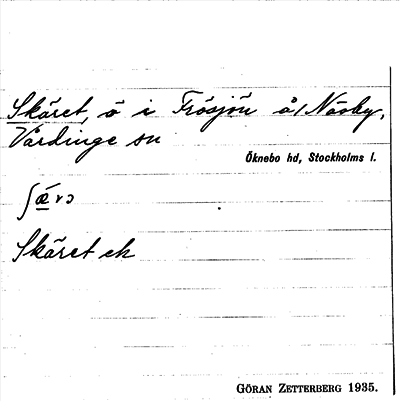 Skäret, ö i Frösjön å/ Näsby,
Vårdinge sn
Öknebo hd, Stockholms l.
ʃǽrɔ
Skäret ek
GÖRAN ZETTERBERG 1935.